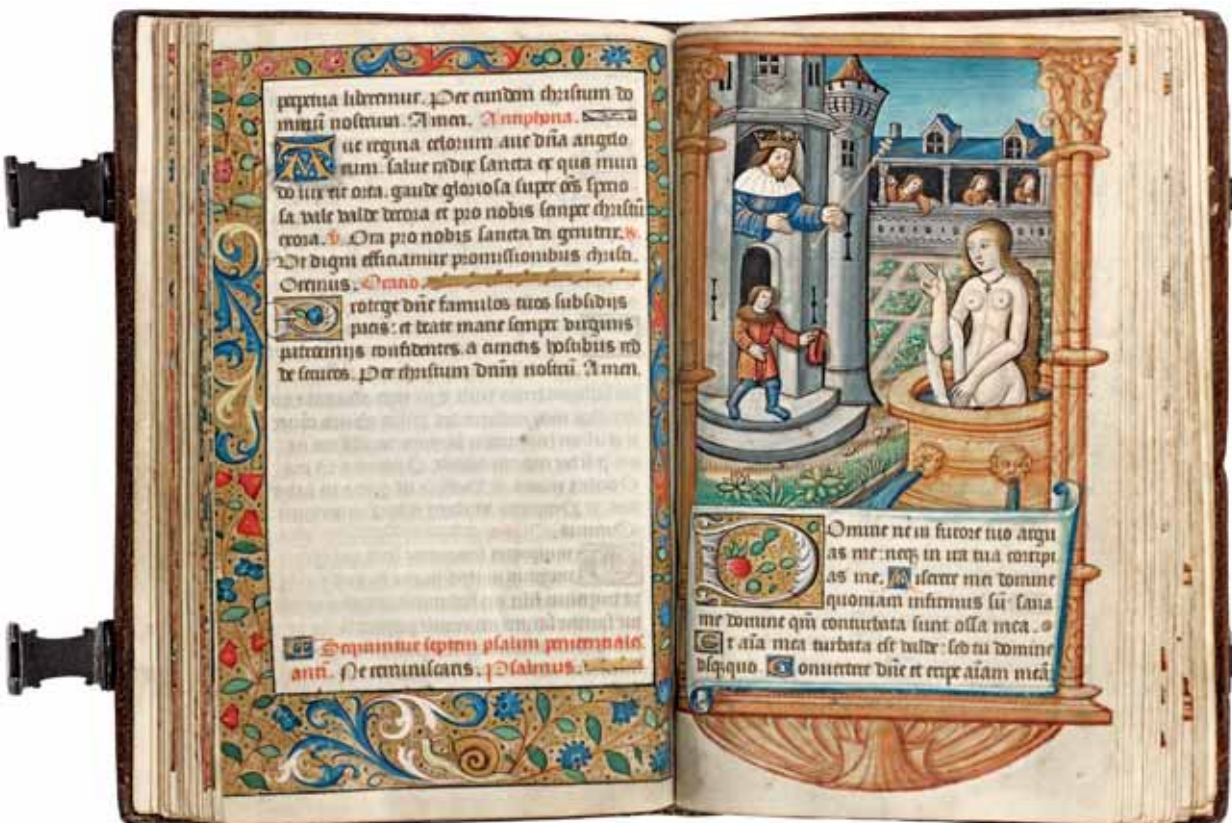 perpetua liberemur. Per eundem christum do
minū nostrum. Amen. Antiphona.
Aue regina celorum aue dn̄a angelo
rum. salue radix sancta ex qua mun
do lux est orta. gaude gloriosa super oēs specio
sa. vale valde decora et pro nobis semper christū
exora. ꝟ. Ora pro nobis sancta dei genitrix. ꝶ.
Vt digni efficiamur promissionibus christi.
Oremus. Oratio.
Protege dn̄e famulos tuos subsidiis
pacis: et beate marie semper virginis
patrociniis confidentes. a cunctis hostibus red
de securos. Per christum dn̄m nostrū. Amen.
Sequuntur septem psalmi penitentiales
anti. Ne reminiscaris. Psalmus.
Domine ne in furore tuo argu
as me: neqꝫ in ira tua corripi
as me. Miserere mei domine
quoniam infirmus sū: sana
me domine qm̄ conturbata sunt ossa mea.
Et aīa mea turbata est valde: sed tu domine
vsqꝫquo. Conuertere dn̄e et eripe aīam meā